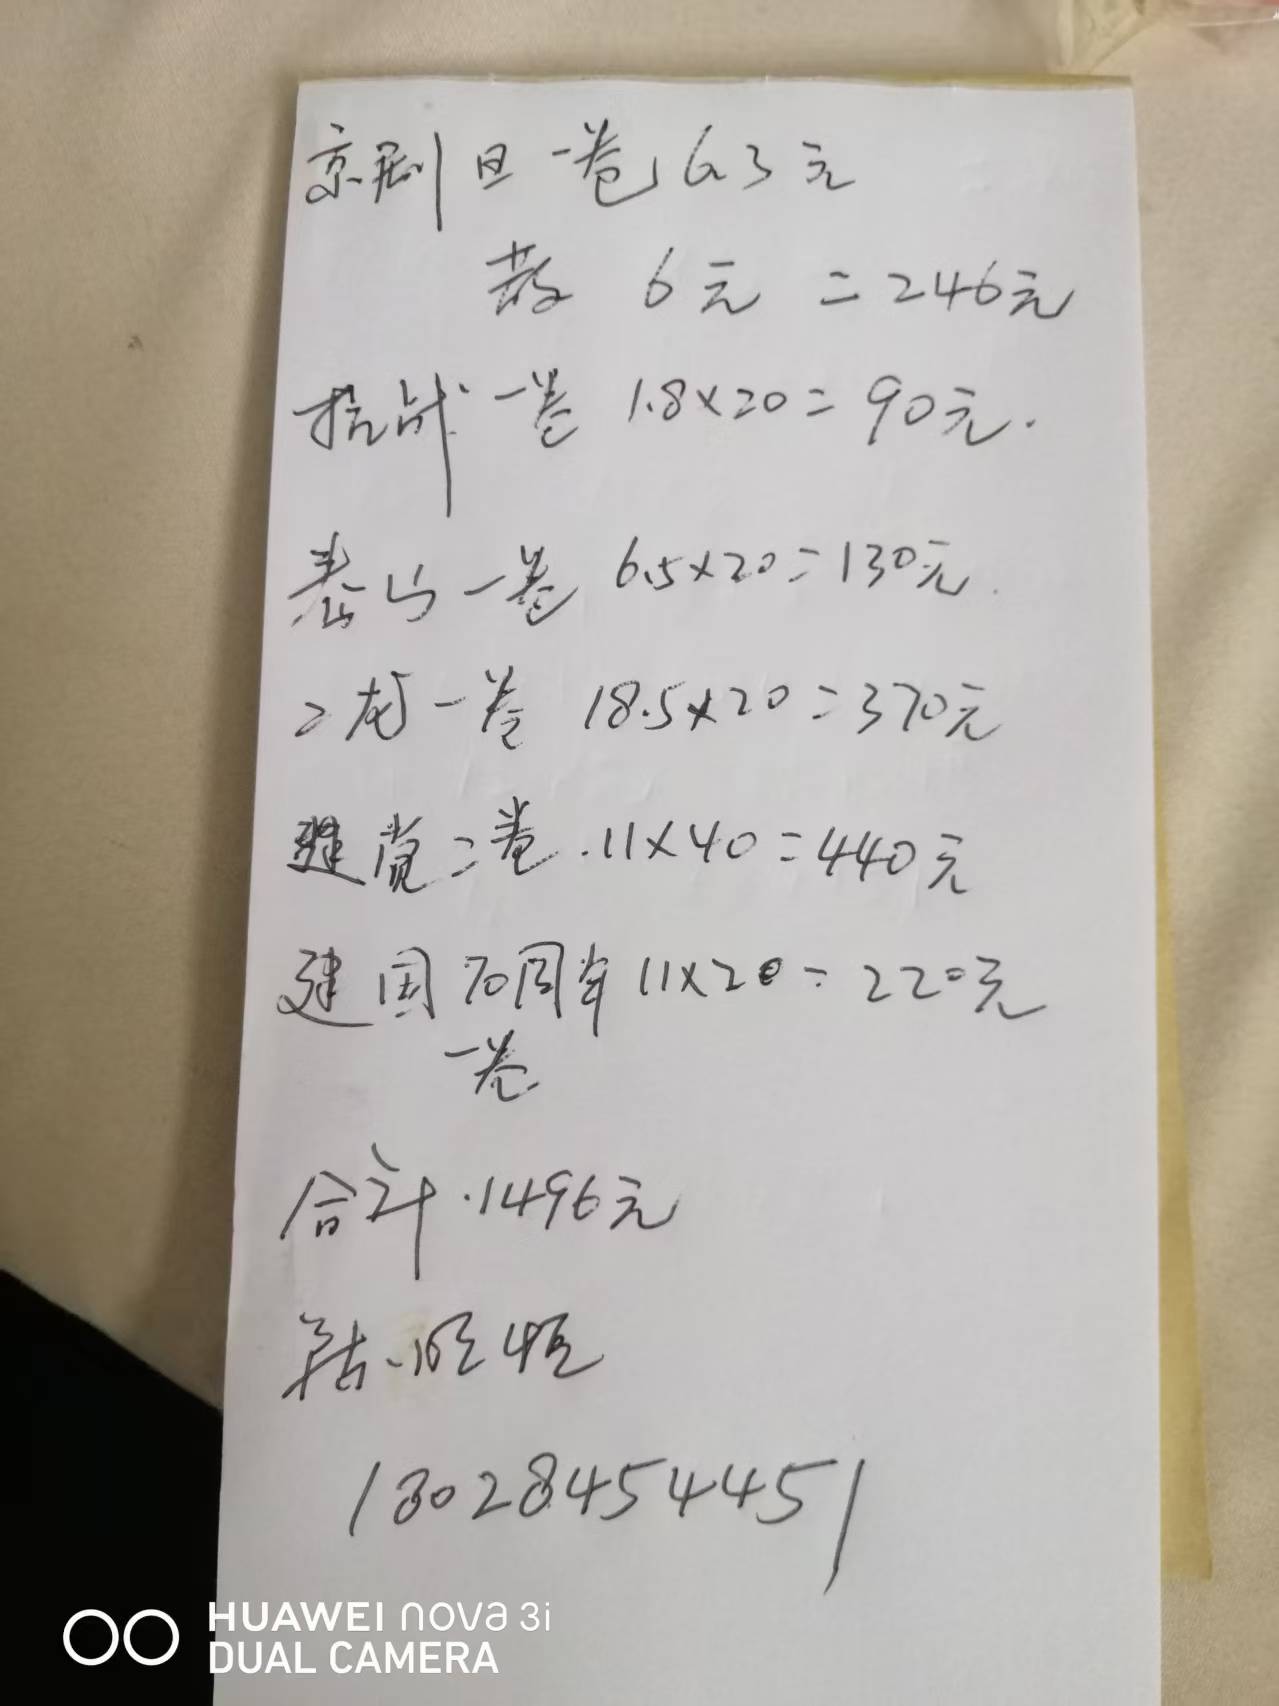 京剧旦一卷 63元
散 6元 = 246元
抗战一卷 1.8×20=90元.
泰山一卷 6.5×20=130元.
二龙一卷 18.5×20=370元
建党二卷.11×40=440元
建国70周年11×20=220元
一卷
合计.1496元
13028454451
HUAWEI nova 3i
DUAL CAMERA